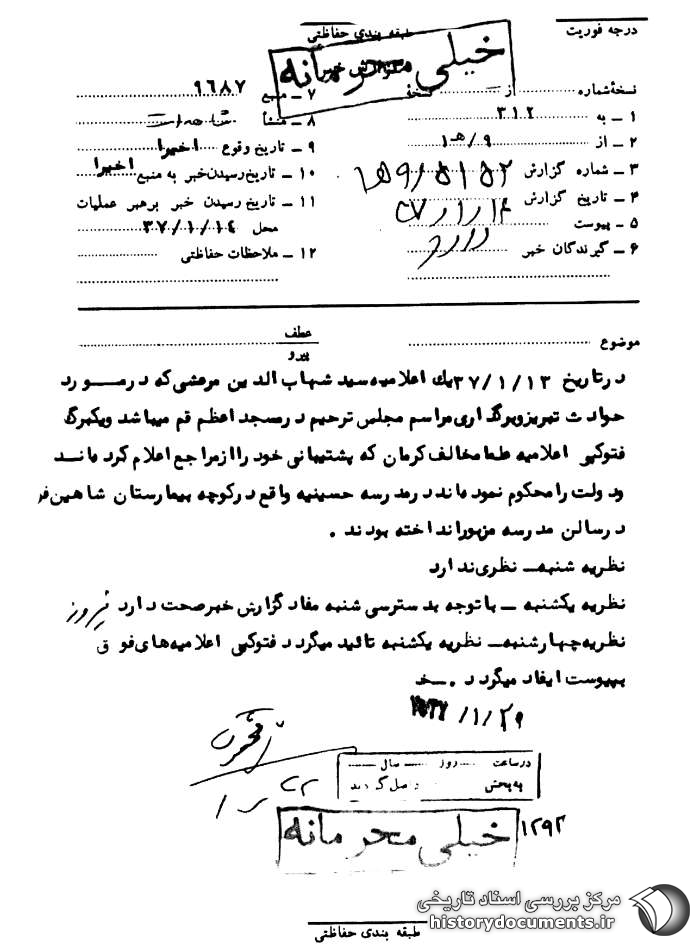 درجه فوریت
طبقه بندی حفاظتی
خیلی محرمانه
گزارش خبر
نسخهٔ شماره از نسخهٔ
۱ – به ۳۱۲
۲ – از ۹/هـ۱
۳ – شماره گزارش
۴ – تاریخ گزارش
۵ – پیوست
۶ – گیرندگان خبر
۷ – منبع ۹۶۸۷
۸ – منشأ
۹ – تاریخ وقوع اخیرا
۱۰ – تاریخ رسیدن خبر به منبع اخیرا
۱۱ – تاریخ رسیدن خبر برهبر عملیات
محل ۳۷/۱/۱۴
۱۲ – ملاحظات حفاظتی
موضوع
عطف
پیرو
درتاریخ ۳۷/۱/۱۳ یک اعلامیه سید شهاب الدین مرعشی که در مورد
حوادث تبریز وبرگذاری مراسم مجلس ترحیم در مسجد اعظم قم میباشد ویکبرگ
فتوکپی اعلامیه علما مخالف کرمان که پشتیبانی خود را از مراجع اعلام کرده‌اند
ودولت را محکوم نموده‌اند در مدرسه حسینیه واقع در کوچه بیمارستان شاهین‌فر
درسالن مدرسه مزبور انداخته بودند .
نظریه شنبه– نظری ندارد
نظریه یکشنبه – با توجه بدسترسی شنبه مفاد گزارش خبر صحت دارد
نظریه چهارشنبه– نظریه یکشنبه تائید میگردد فتوکپی اعلامیه‌های فوق
بپیوست ایفاد میگردد .
/۱/۲۹
درساعت روز سال
به بخش واصل گردید
خیلی محرمانه
۱۲۹۲
طبقه بندی حفاظتی
مرکز بررسی اسناد تاریخی
historydocuments.ir